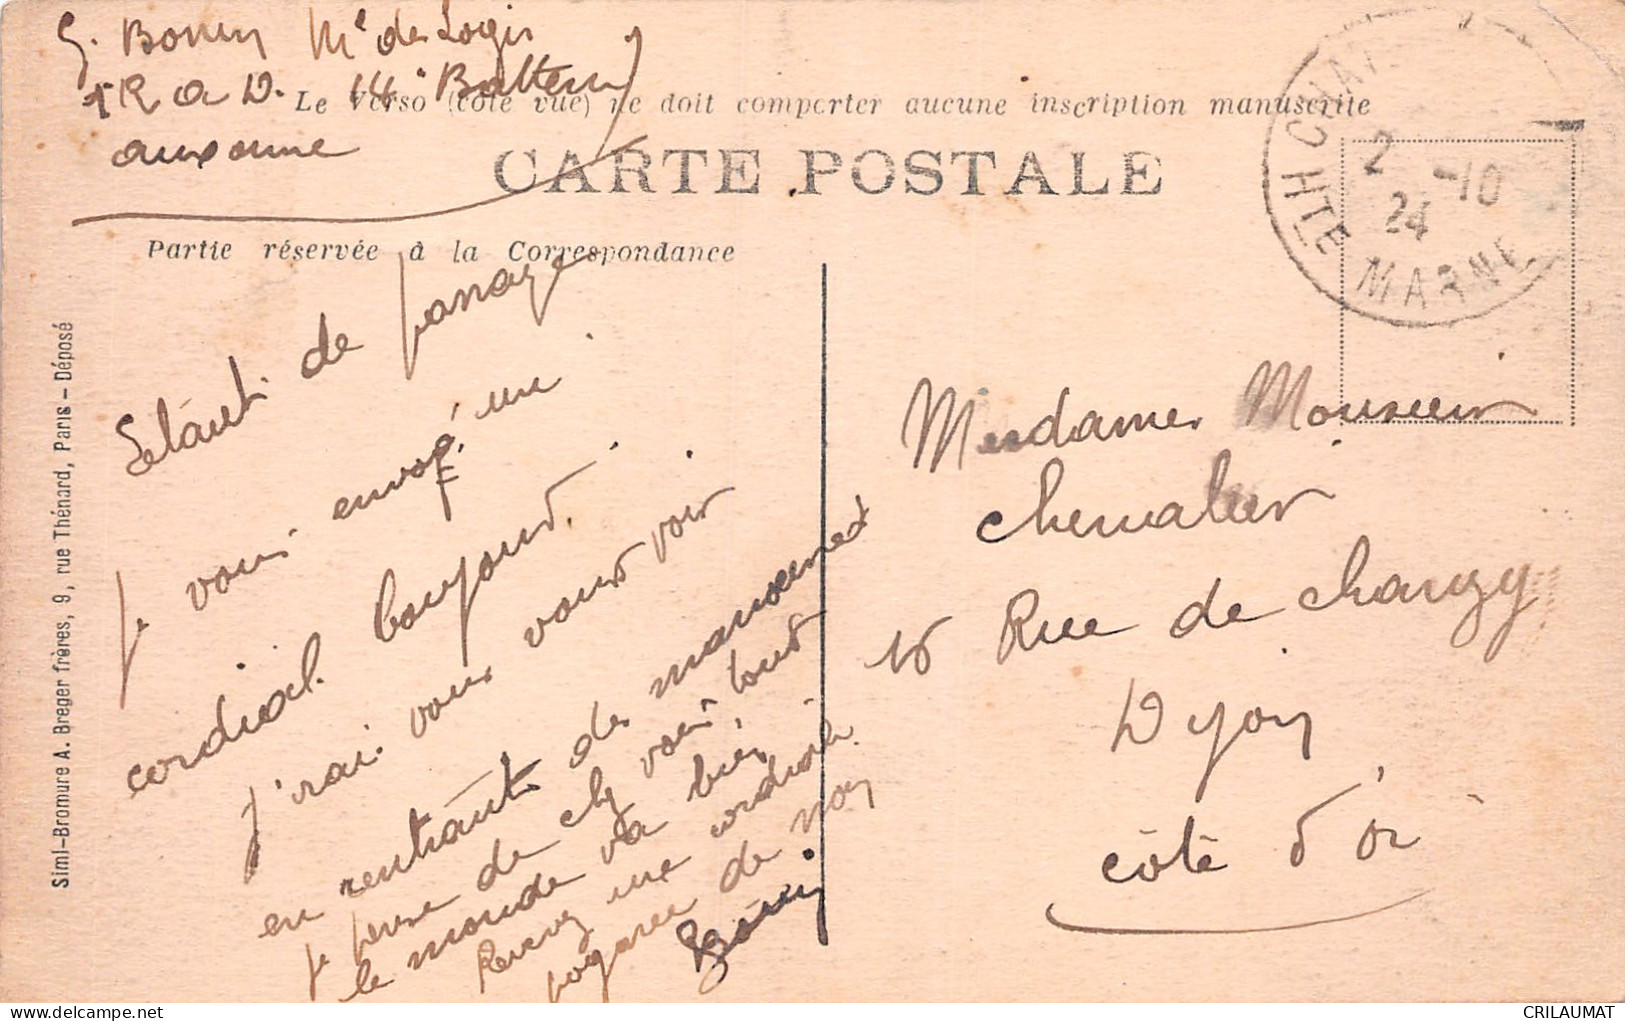 G. Bonin Mˡ des Logis
1 R a D. 14ᵉ Batterie
auxonne
Le Verso (côté vue) ne doit comporter aucune inscription manuscrite
CARTE POSTALE
Partie réservée à la Correspondance
HTE MARNE
2 -10
24
Simi-Bromure A. Breger frères, 9, rue Thénard, Paris - Déposé
Etant de passage
je vous envoye un
cordial bonjour.
J'irai vous voir
en rentrant des manoeuvres
je pense de chez vous tout
le monde va bien,
Recevez une cordiale
de
Bonin
Monsieur
Chevalier
16 Rue de Chanzy
Dyon
côte d'or
CRILAUMAT